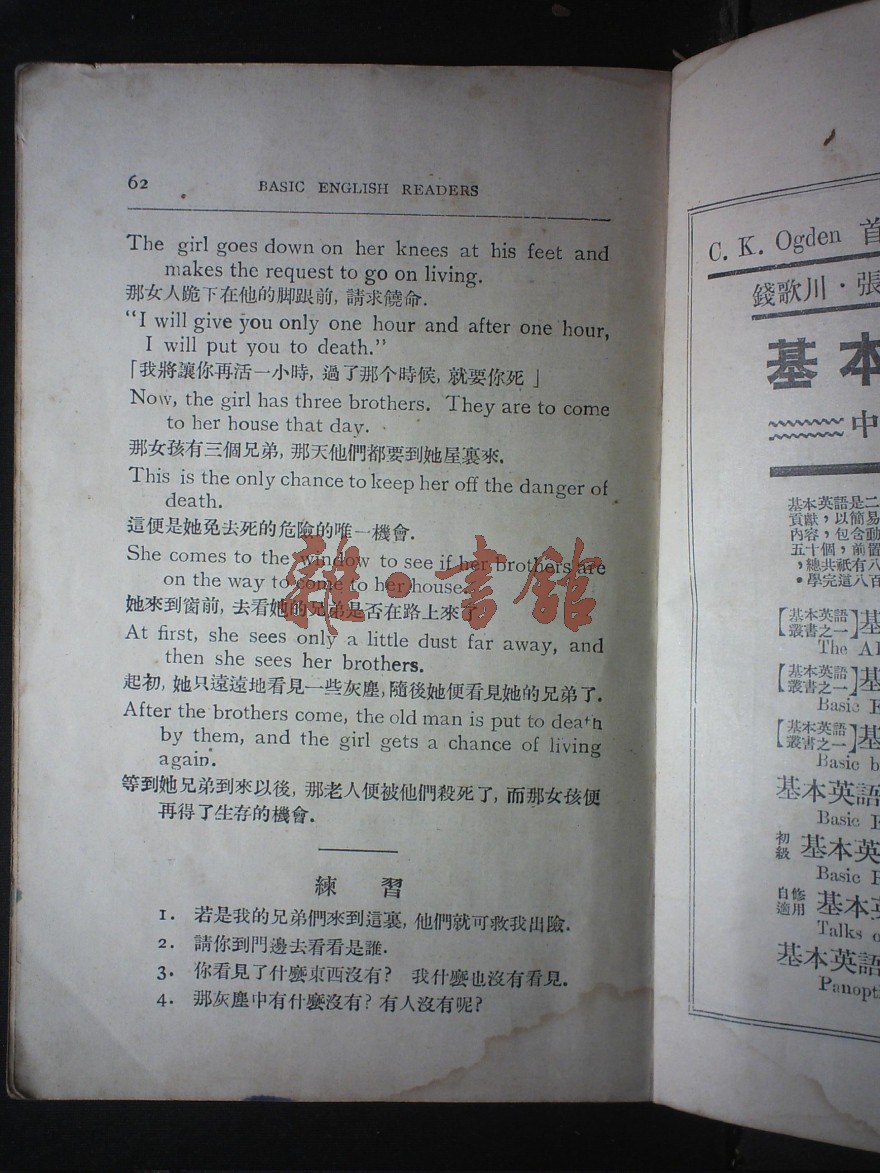 62 BASIC ENGLISH READERS
The girl goes down on her knees at his feet and
makes the request to go on living.
那女人跪下在他的脚跟前, 請求饒命.
"I will give you only one hour and after one hour,
I will put you to death."
「我將讓你再活一小時, 過了那个時候, 就要你死」
Now, the girl has three brothers. They are to come
to her house that day.
那女孩有三個兄弟, 那天他們都要到她屋裏來.
This is the only chance to keep her off the danger of
death.
這便是她免去死的危險的唯一機會.
She comes to the window to see if her brothers are
on the way to come to her house.
她來到窗前, 去看她的兄弟是否在路上來了
At first, she sees only a little dust far away, and
then she sees her brothers.
起初, 她只遠遠地看見一些灰塵, 隨後她便看見她的兄弟了.
After the brothers come, the old man is put to death
by them, and the girl gets a chance of living
again.
等到她兄弟到來以後, 那老人便被他們殺死了, 而那女孩便
再得了生存的機會.
練 習
1. 若是我的兄弟們來到這裏, 他們就可救我出險.
2. 請你到門邊去看看是誰.
3. 你看見了什麼東西沒有? 我什麼也沒有看見.
4. 那灰塵中有什麼沒有? 有人沒有呢?
雜·書館
C. K. Ogden 首
錢歌川·張
基本
中
基本英語是二
貢獻，以簡易
內容，包含動
五十個，前置
，總共祇有八
•學完這八百
【基本英語叢書之一】基
The A
【基本英語叢書之一】基
Basic E
【基本英語叢書之一】基
Basic b
基本英語
Basic E
初級 基本英
Basic E
自修適用 基本
Talks o
基本英語
Panopt